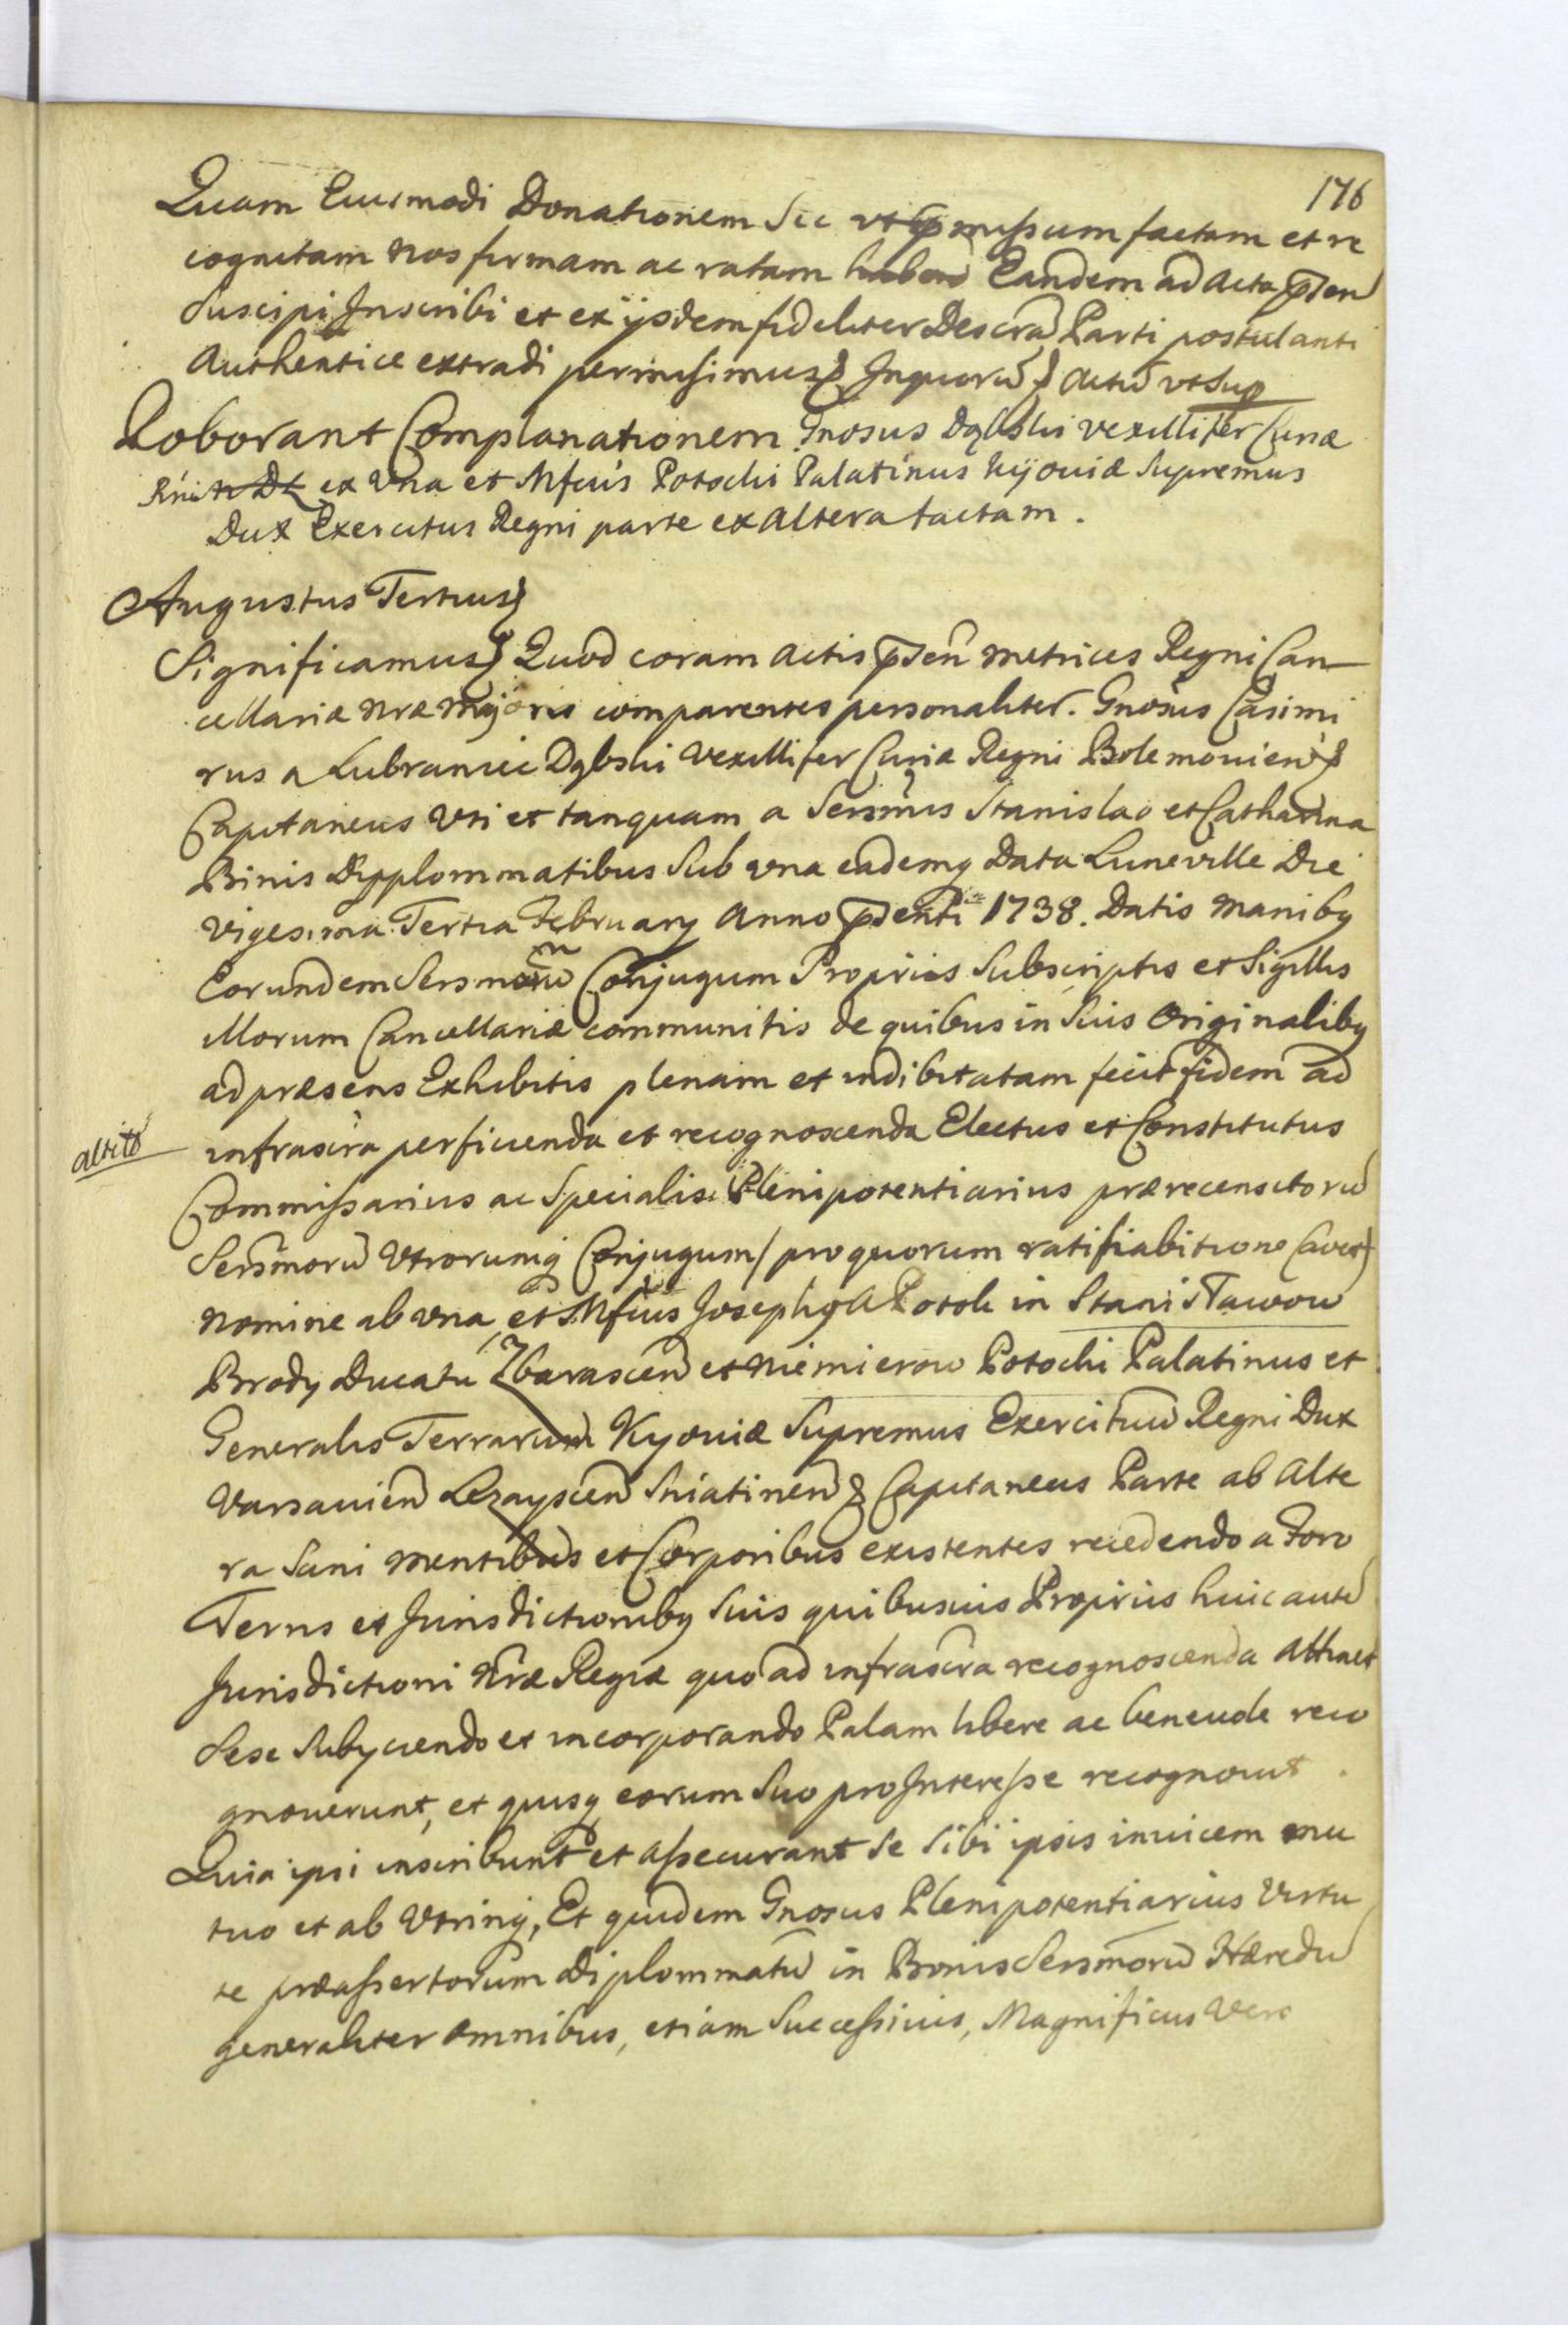 176
Quam Eiusmodi Donationem Sic vt præmissum factam et re
cognitam nos firmam ac ratam haben Eandem ad Acta præsen
Suscipi Inscribi et ex ijsdem fideliter Descra Parti postulanti
Authentice extradi permisimus Inquorũ Actũ vt Sup
Roborant Complanationem Gnosus Dąbski vexillifer Curiæ
Rni ex Vna et Mfcus Potocki Palatinus Kijouiæ Supremus
Dux Exercitus Regni parte ex Altera factam.
Augustus Tertius
Significamus Quod coram Actis præsen Metrices Regni Can
cellariæ nræ Majoris comparentes personaliter. Gnosus Casimi
rus a Lubraniec Dąbski Vexillifer Curiæ Regni Bolemouien
Capitaneus Vti et tanquam a Sersmis Stanislao et Catharina
Binis Dypplommatibus Sub vna eademq Data Luneville Die
Vigesima Tertia February Anno præsenti 1738. Datis Manibq
Eorundem Sersmorũ Conjugum Proprijs Subscriptis et Sigillis
illorum Cancellariæ communitis de quibus in Suis Originalibq
ad præsens Exhibitis plenam et indibitatam fecit fidem ad
infrascra perficienda et recognoscenda Electus et Constitutus
Commissarius ac Specialis Plenipotentiarius prærecensitorũ
Sersmorũ Vtrorumq Conjugum / pro quorum ratihabitione Cavet
nomine ab vna, et Mfcus Josephq a Potok in Stanisławow
Brody Ducatu Zbarascen et Niemierow Potocki Palatinus et
Generalis Terrarum Kyouiæ Supremus Exercituũ Regni Dux
Varsauien Lezayscen Sniatinen & Capitaneus Parte ab Alte
ra Sani mentibus et Corporibus existentes recedendo a Foro
Terris et Jurisdictionibq Suis quibusuis Proprijs huic autẽ
Jurisdictioni Nræ Regiæ quoad infrascra recognoscenda Attinet
Sese Subyciendo et incorporando Palam libere ac beneuole reco
gnouerunt, et quisq eorum Suo pro Interesse recognouit.
Quia ipsi inscribunt et assecurant Se Sibi ipsis inuicem mu
tuo et ab Vtrinq, Et quidem Gnosus Plenipotentiarius Virtu
te præassertorum Diplommatũ in Bonis Sersmorũ Hæredũ
generaliter omnibus, etiam Successiuis, Magnificus Vero